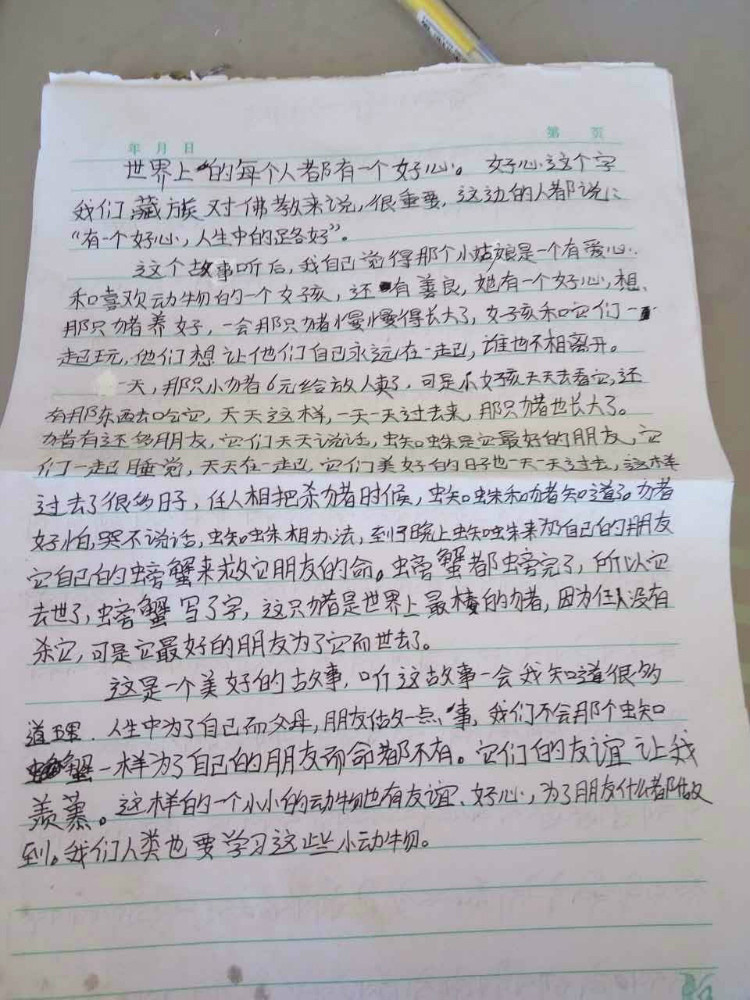 年 月 日
第 页
世界上的每个人都有一个好心。好心这个字
我们藏族对佛教来说,很重要,这边的人都说:
“有一个好心,人生中的路各好”。
这个故事听后,我自己觉得那个小姑娘是一个有爱心
和喜欢动物的一个女孩,还有善良,她有一个好心,想
那只猪养好,一会那只猪慢慢得长大了,女孩和它们一
起玩,他们想让他们自己永远在一起,谁也不相离开。
一天,那只小猪6元给放人卖了,可是小女孩天天去看它,还
有那东西去吃它,天天这样,一天一天过去来,那只猪也长大了。
猪有还多朋友,它们天天说话,蜘蛛是它最好的朋友,它
们一起睡觉,天天在一起,它们美好的日子也一天一天过去,这样
过去了很多日子,任人相把杀猪时候,蜘蛛和猪知道了。猪
好怕,哭不说话,蜘蛛想办法,到了晚上蜘蛛来为自己的朋友
它自己的螃蟹来救它朋友的命。螃蟹都螃完了,所以它
去世了,螃蟹写了字,这只猪是世界上最棒的猪,因为任人没有
杀它,可是它最好的朋友为了它而世去了。
这是一个美好的故事,听这故事一会我知道很多
道理.人生中为了自己而父母,朋友估做一点事,我们不会那个蜘
蟹一样为了自己的朋友而命都不有。它们的友谊让我
羡慕。这样的一个小小的动物也有友谊、好心,为了朋友什么都做
到。我们人类也要学习这些小动物。